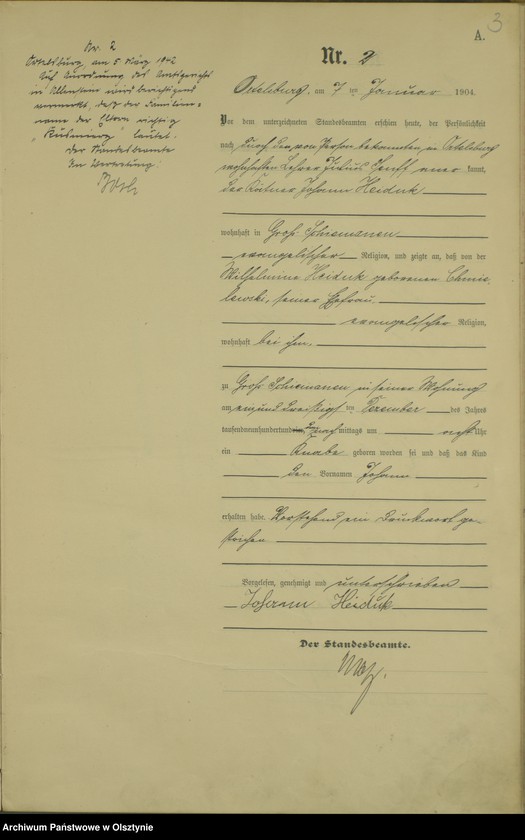 3
A.
Nr. 2
Ortelsburg, am 5 März 1942
Auf Anordnung des Amtsgerichts
in Allenstein wird berichtigend
vermerkt, daß der Familien-
name der Eltern richtig
lautet.
Der Standesbeamte
In Vertretung:
Nr. 2
Ortelsburg, am 7 ten Januar 1904.
Vor dem unterzeichneten Standesbeamten erschien heute, der Persönlichkeit
nach durch den von Person bekannten, in Ortelsburg
wohnhaften Lehrer Julius aner kannt,
der Kätner Johann Heiduk
wohnhaft in Groß Schiemanen
evangelischer Religion, und zeigte an, daß von der
Wilhelmine Heiduk geborenen Chmie-
lewski, seiner Ehefrau
evangelischer Religion,
wohnhaft bei ihm,
zu Groß Schiemanen in seiner Wohnung
am einunddreißigsten ten Dezember des Jahres
tausendneunhundertund drei nach mittags um acht Uhr
ein Knabe geboren worden sei und daß das Kind
den Vornamen Johann
erhalten habe. Vorstehend ein Druckwort ge-
strichen
Vorgelesen, genehmigt und unterschrieben
Johann Heiduk
Der Standesbeamte.
Archiwum Państwowe w Olsztynie